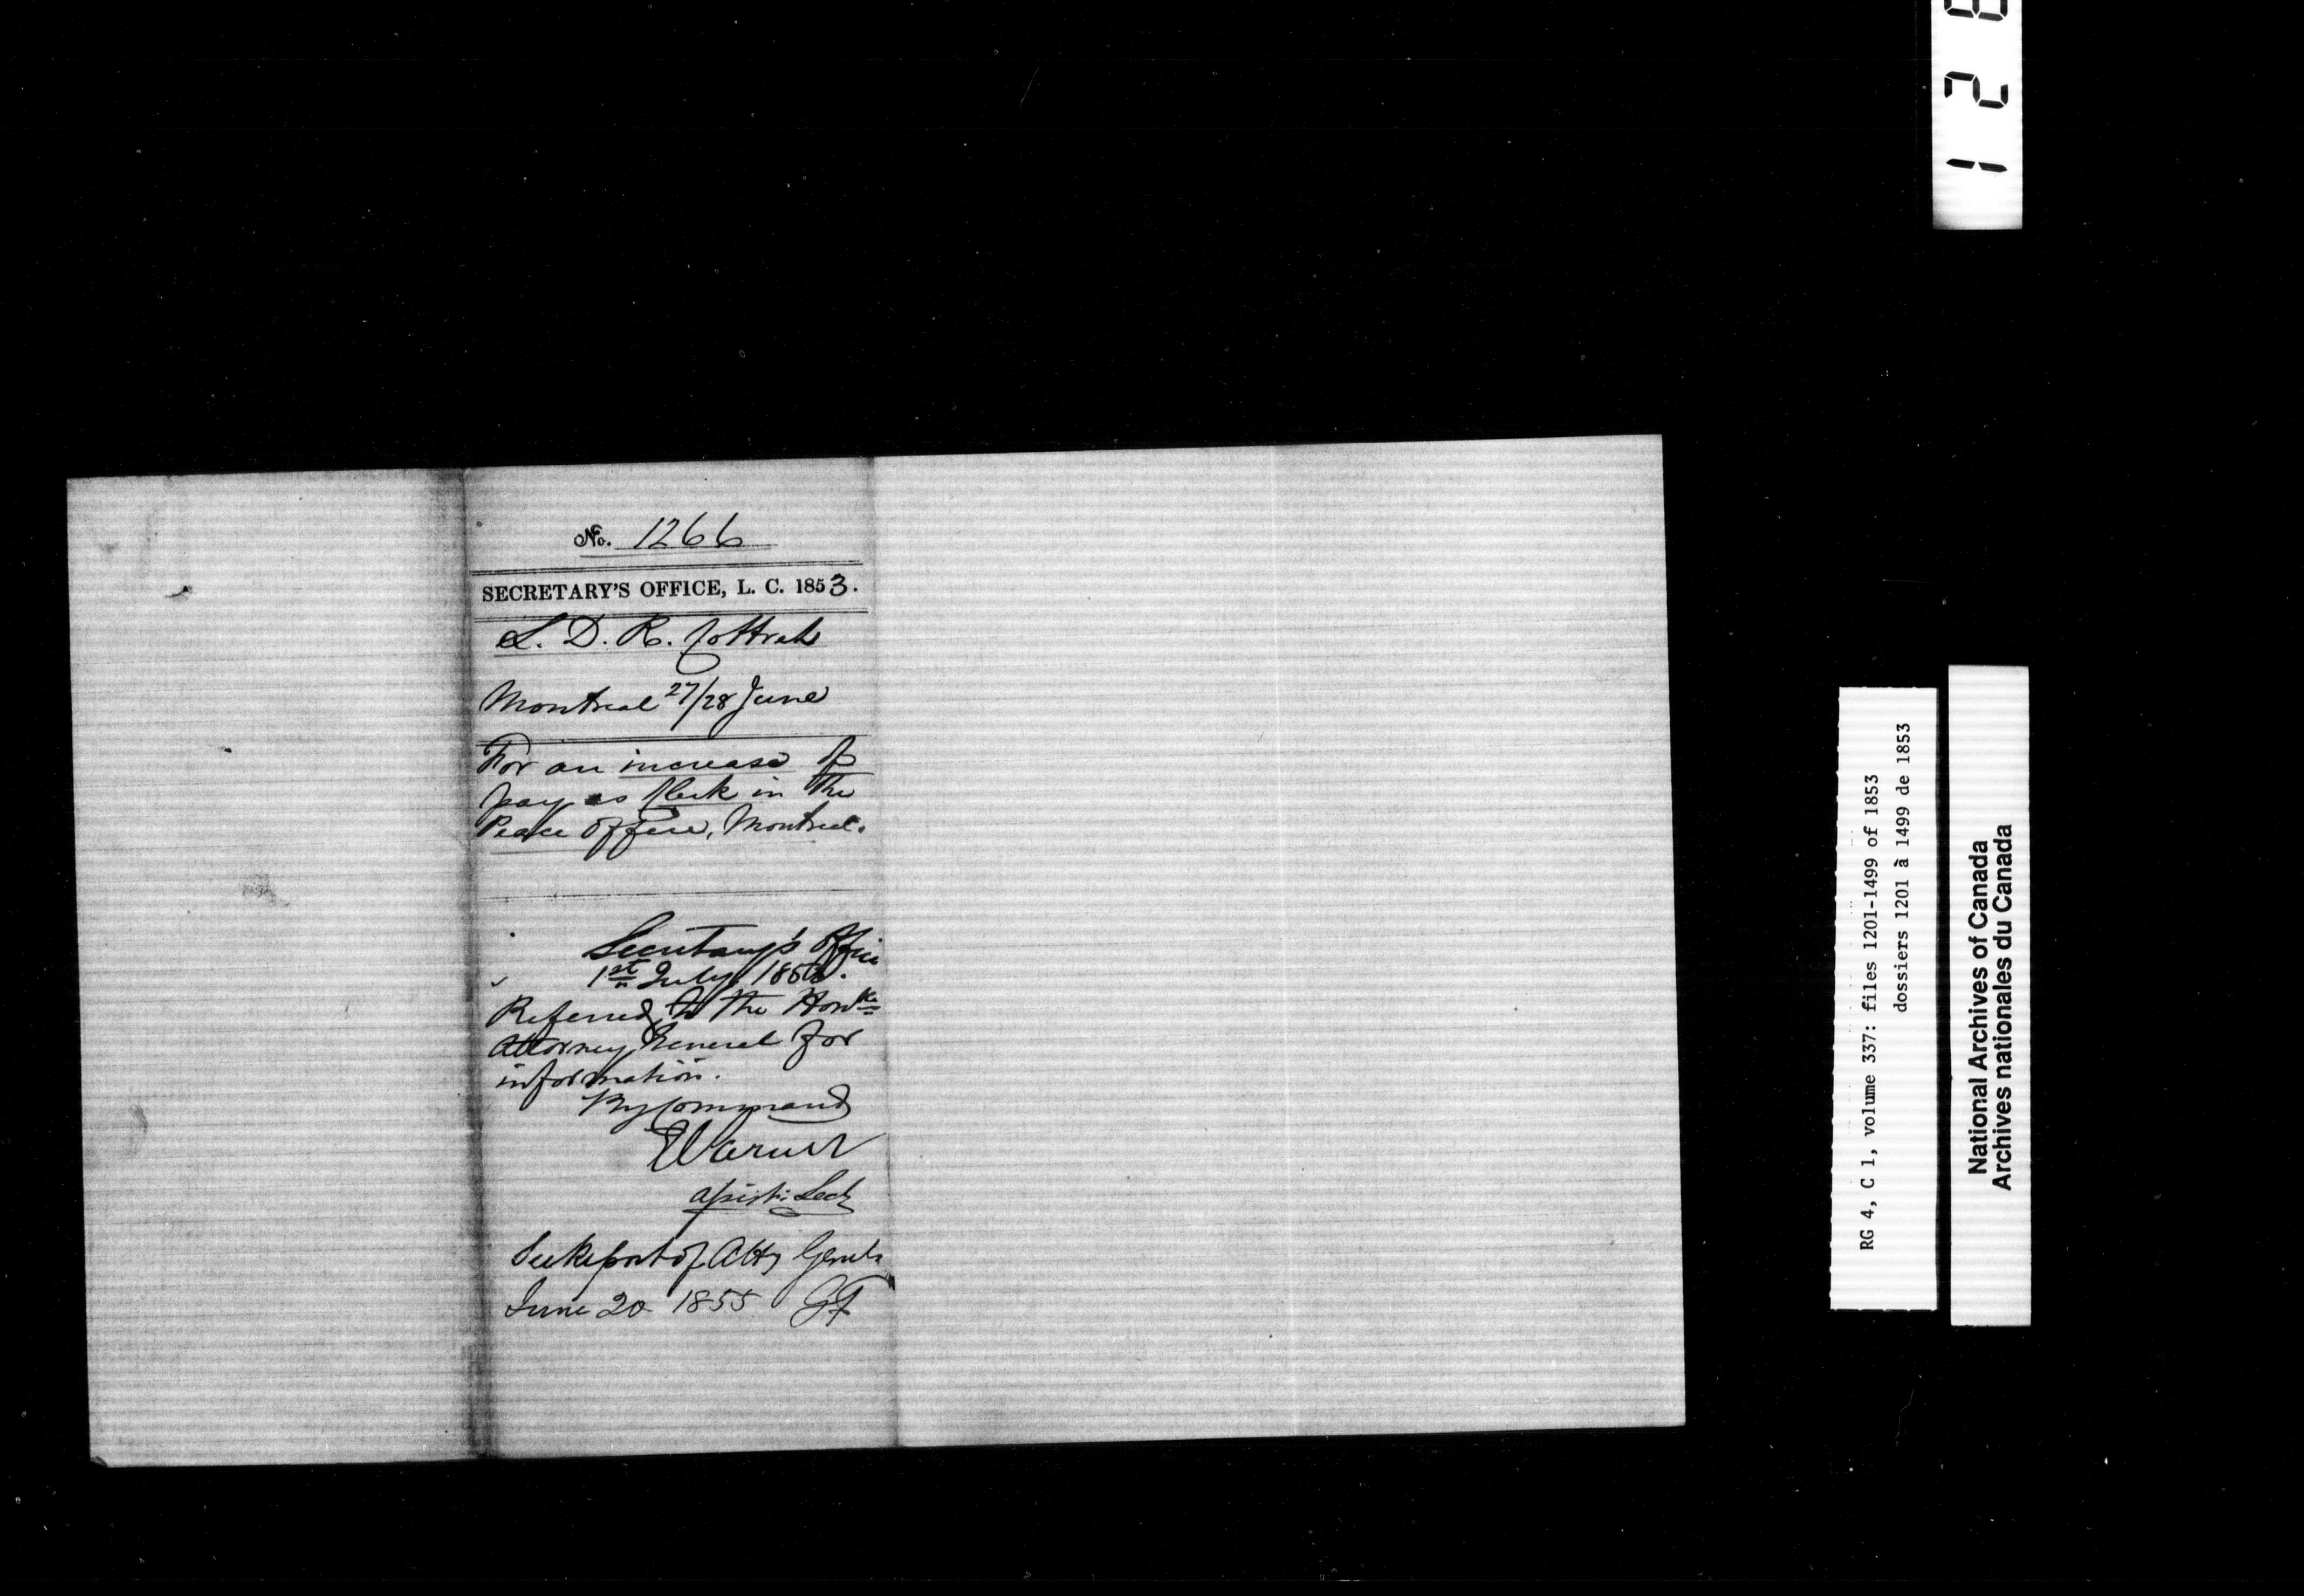 No. 1266
SECRETARY'S OFFICE, L. C. 1853.
L. D. R. Cottret
Montreal 27/28 June
For an increase of
pay as Clerk in the
Peace Office, Montreal.
Secretary's Office
1st July, 1853.
Referred to the Honble
Attorney General for
information.
By Command
Assist: Secy
See Report of Atty Genls
June 20 1855 GF
128
RG 4, C 1, volume 337: files 1201-1499 of 1853
dossiers 1201 à 1499 de 1853
National Archives of Canada
Archives nationales du Canada